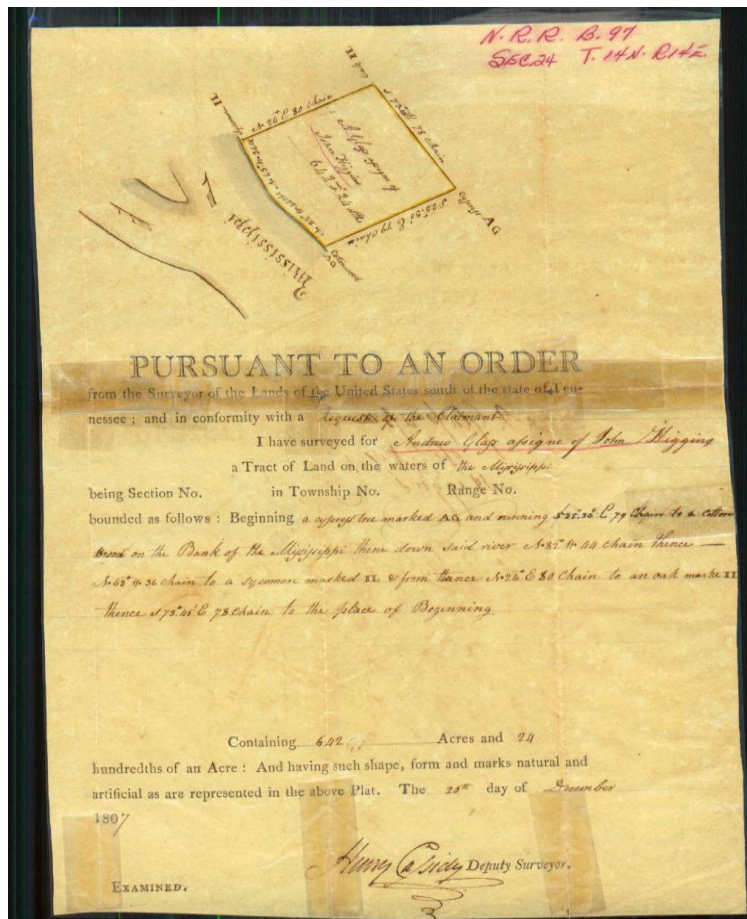 N.R.R. B.97
SEC.24 T.14N. R14E
Oak II
N 26° E 80 Chain
Sycamore II
A Glass assigne of
John Higgins
642 24
S 25.30 E 79 Chain
AG
Mississippi
PURSUANT TO AN ORDER
from the Surveyor of the Lands of the United States south of the state of Ten-
nessee ; and in conformity with a Request of the Claimant
I have surveyed for Andrew Glass assigne of John Higgins
a Tract of Land on the waters of the Mississippi
being Section No. in Township No. Range No.
bounded as follows : Beginning a cypress tree marked AG and running S 25.30 E 79 Chain to a Cotton
on the Bank of the Mississippi thene down said river N 82° W 44 chain thence
N 63° W 36 chain to a sycomon marked II & from thance N 26° E 80 Chain to an oak marke II
thence S 73° 45' E 78 Chain to the place of Beginning
Containing 642 Acres and 24
hundredths of an Acre : And having such shape, form and marks natural and
artificial as are represented in the above Plat. The day of December
1807
Henry Cassidy Deputy Surveyor.
EXAMINED.